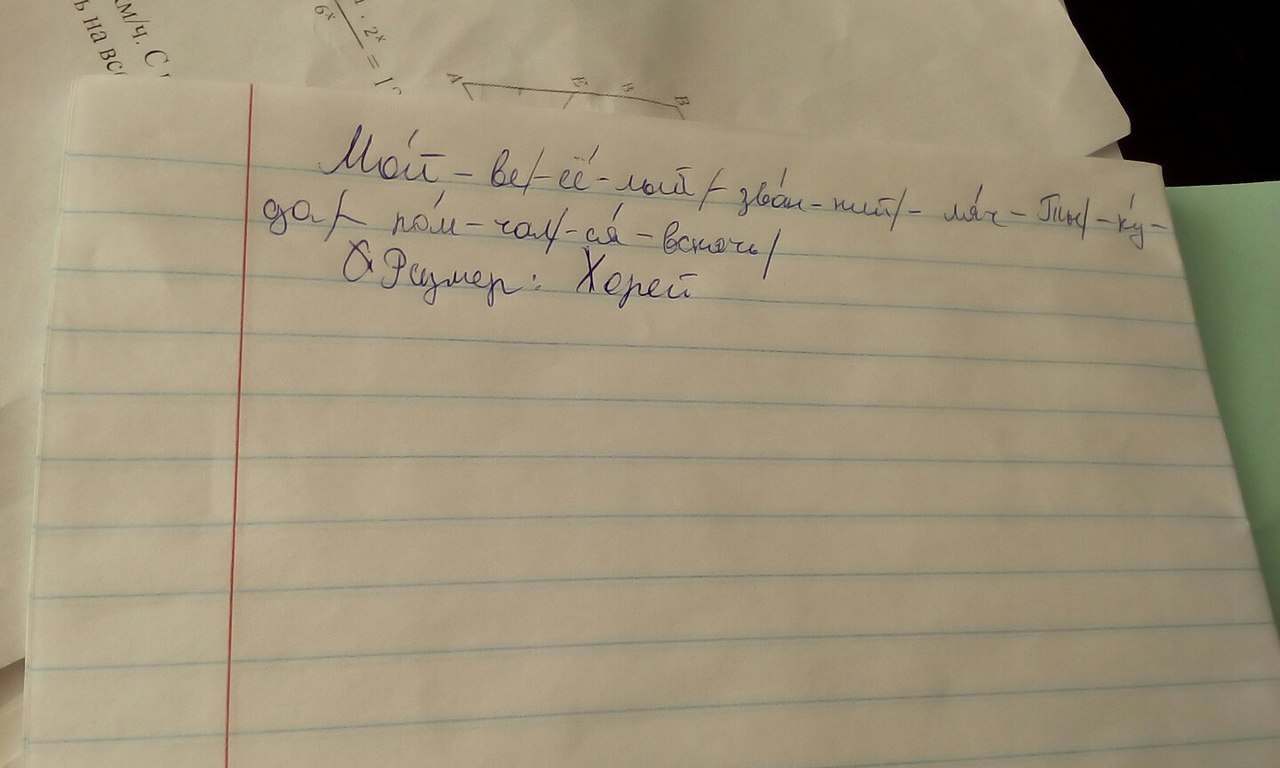 км/ч. С
ь на вс
6ˣ
· 2ˣ
= 1
A E B B
Мо́й – ве/– ёё́ – лый /– зво́н – кий/ – мя́ч – Ты/ – ку́ –
да/– по́м – чал/– ся́ – вскачь/
Размер: Хорей